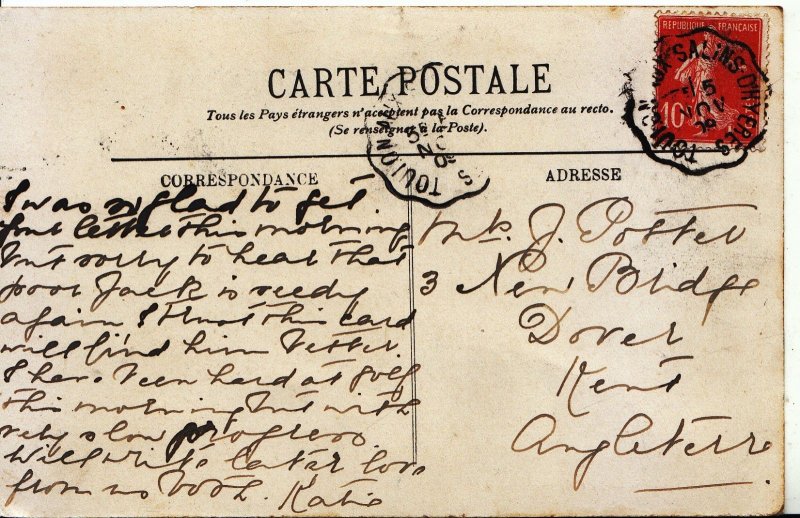 REPUBLIQUE FRANÇAISE
10
CARTE POSTALE
Tous les Pays étrangers n'acceptent pas la Correspondance au recto.
(Se renseigner à la Poste).
CORRESPONDANCE
ADRESSE
I was so glad to get
letter this morning
but sorry to hear that
poor Jack is seedy
again I trust this card
will find him better.
I have been hard at golf
this morning but with
very slow progress
Will write later love
from us both. Katie
J. Potter
3 New Bridge
Dover
Kent
Angleterre
TOULON
SALINS D'HYÈRES